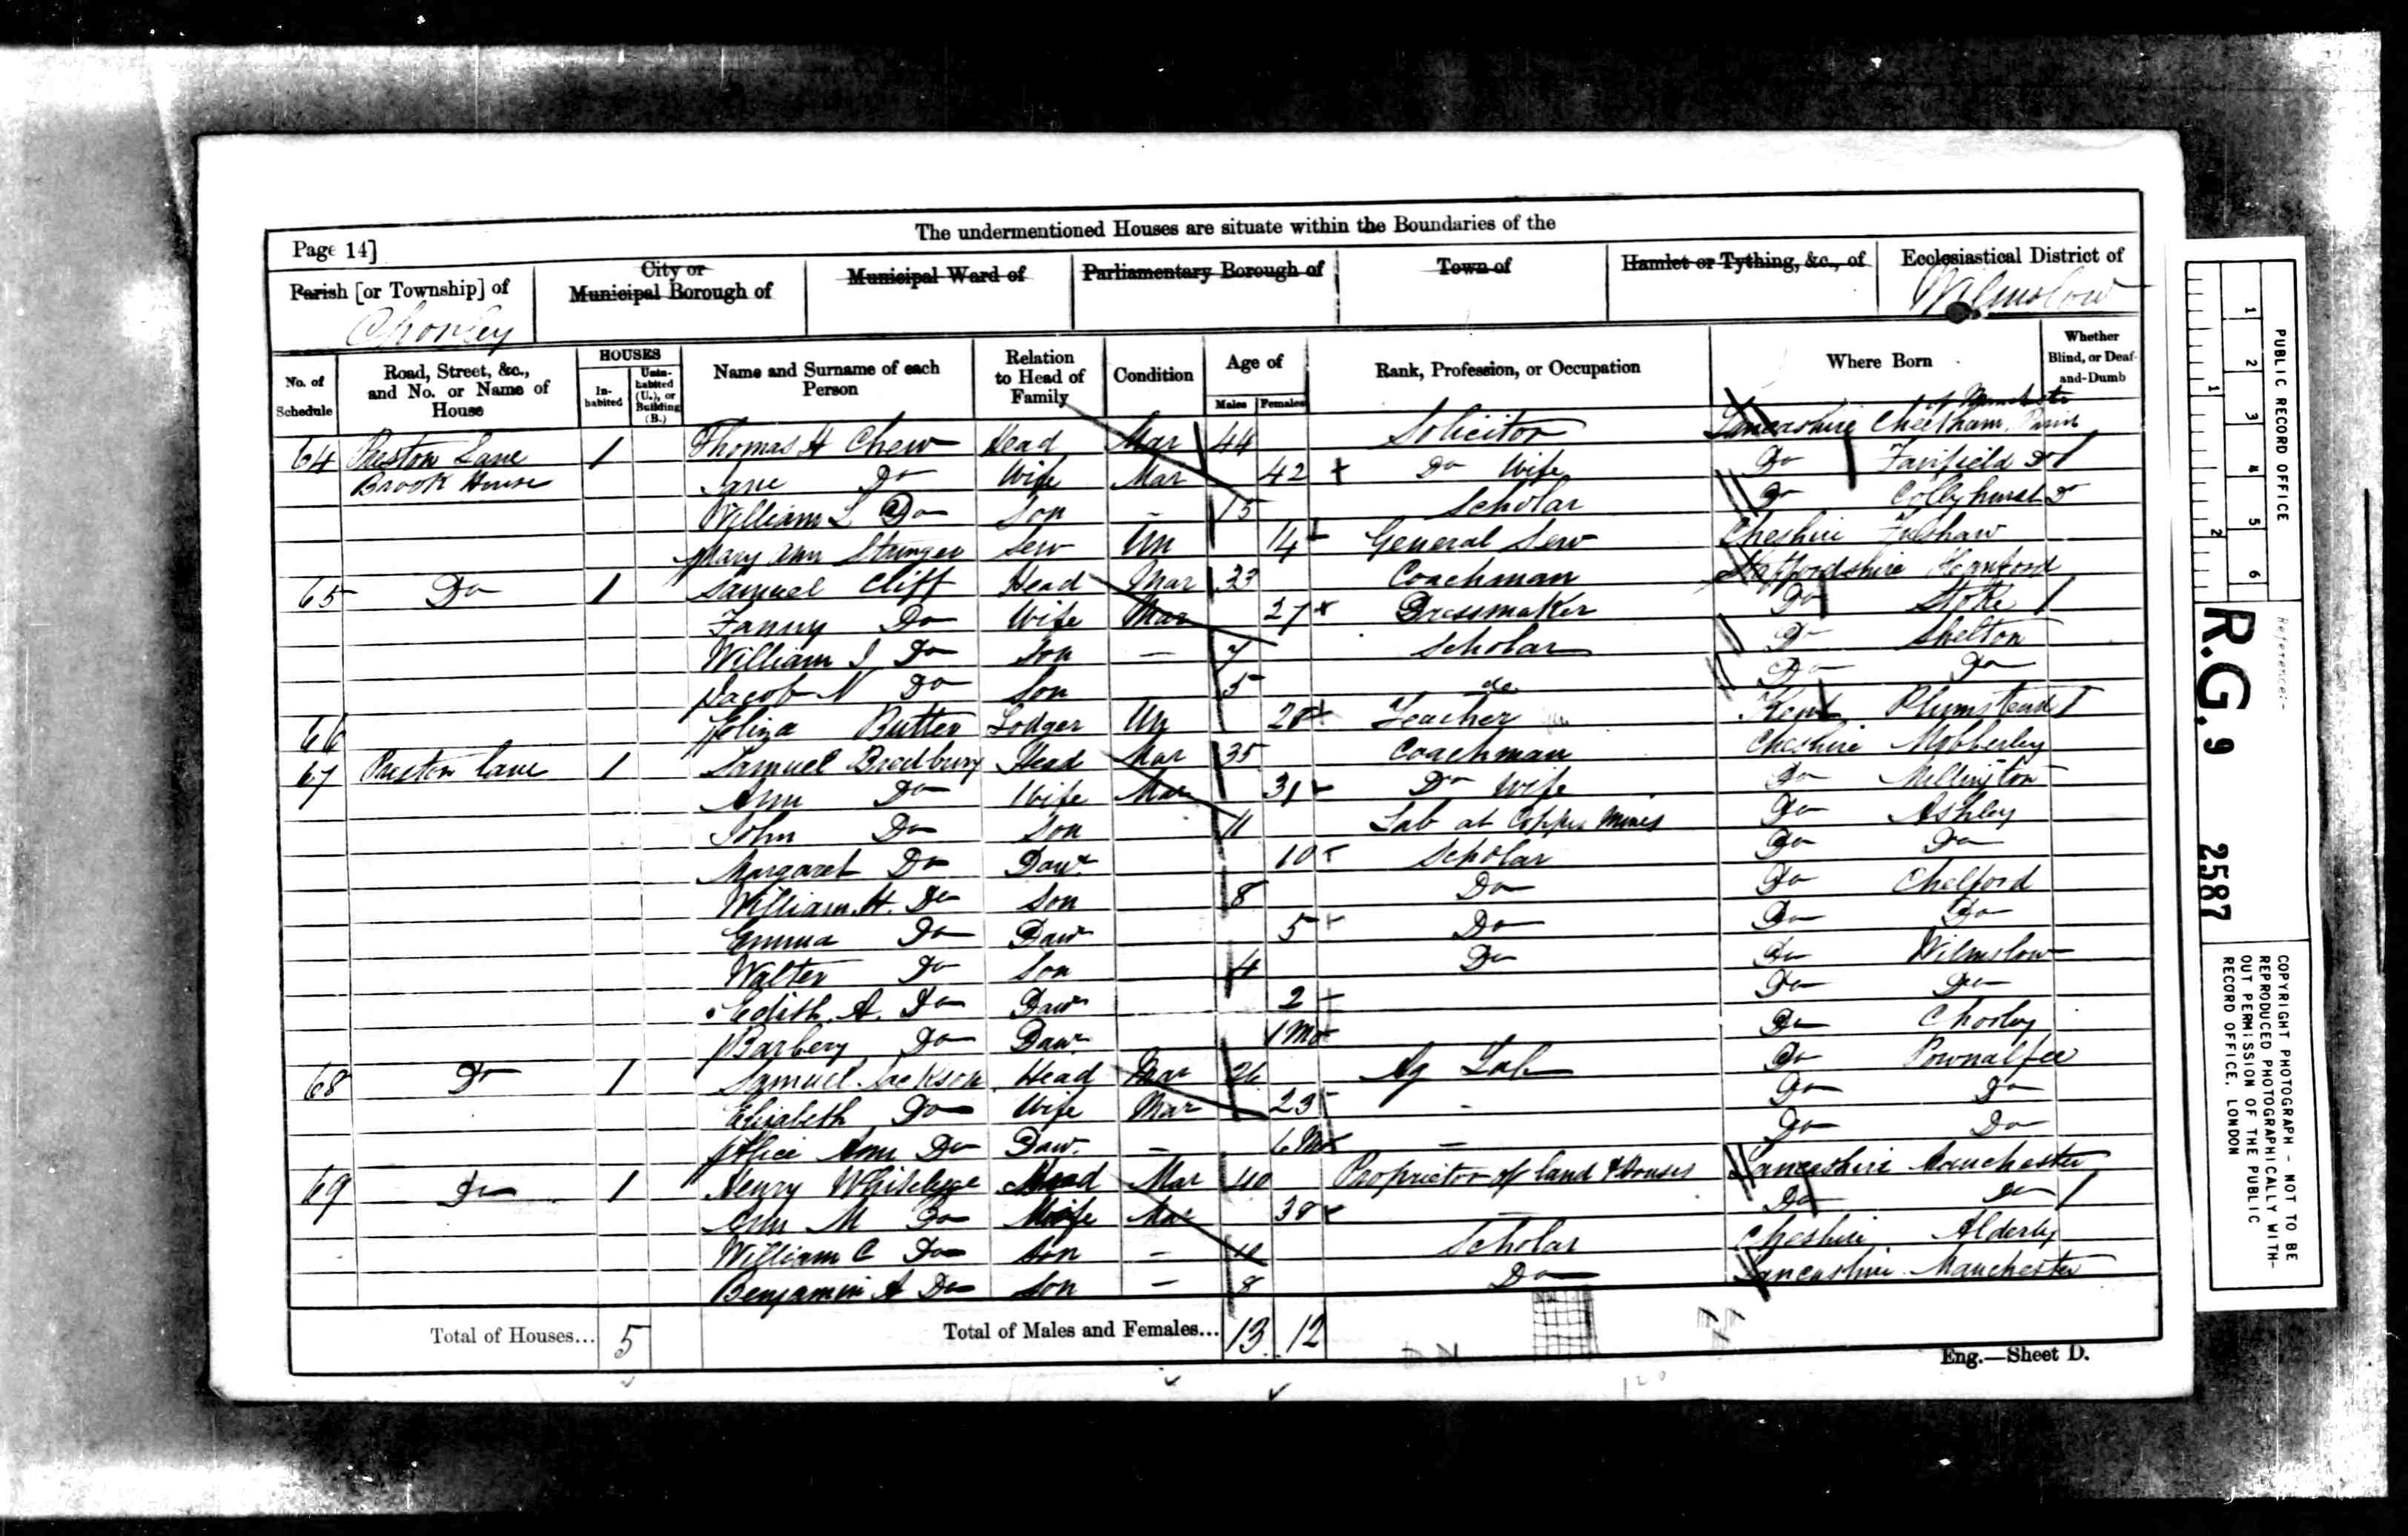 The undermentioned Houses are situate within the Boundaries of the
Page 14]
Parish [or Township] of
Chorley
City or Municipal Borough of
Municipal Ward of
Parliamentary Borough of
Town of
Hamlet or Tything, &c., of
Ecclesiastical District of
Wilmslow
No. of Schedule
Road, Street, &c., and No. or Name of House
HOUSES
In-habited
Unin-habited (U.), or Building (B.)
Name and Surname of each Person
Relation to Head of Family
Condition
Age of
Males
Females
Rank, Profession, or Occupation
Where Born
Whether Blind, or Deaf-and-Dumb
of Manchester
64 Preston Lane 1 Thomas H Chew Head Mar 44 Solicitor Lancashire Cheetham Parish
Brook House Jane Do Wife Mar 42 Do Wife Do Fairfield Do
William L Do Son – 15 Scholar Do Collyhurst Do
Mary Ann Stringer Serv Un 14 General Serv Cheshire Fulshaw
65 Do 1 Samuel Cliff Head Mar 33 Coachman Staffordshire
Fanny Do Wife Mar 27 Dressmaker Do Stoke
William J Do Son – 7 Scholar Do Shelton
Jacob N Do Son 5 do Do Do
66 Eliza Butter Lodger Un 28 Teacher Kent Plumstead
67 Preston Lane 1 Samuel Bradbury Head Mar 35 Coachman Cheshire Mobberley
Ann Do Wife Mar 31 Do Wife Do Millington
John Do Son 11 Lab at Copper Mines Do Ashley
Margaret Do Daur 10 Scholar Do Do
William H. Do Son 8 Do Do Chelford
Emma Do Daur 5 Do Do Do
Walter Do Son 4 Do Do Wilmslow
Edith A. Do Daur 2 Do Do
Barbery Do Daur 1 Mo Do Chorley
68 Do 1 Samuel Jackson Head Mar 26 Ag Lab Do Pownalfee
Elizabeth Do Wife Mar 23 – Do Do
Alice Ann Do Daur – 6 Mo – Do Do
69 Do 1 Henry Head Mar 40 Proprietor of land & houses Lancashire Manchester
Ann M Do Wife Mar 38 – Do Do
William C Do Son – 10 Scholar Cheshire Alderley
Benjamin A Do Son – 8 Do Lancashire Manchester
Total of Houses... 5
Total of Males and Females... 13 12
Eng.—Sheet D.
PUBLIC RECORD OFFICE
1 2 3 4 5 6
1 2
Reference:-
R.G. 9
2587
COPYRIGHT PHOTOGRAPH - NOT TO BE
REPRODUCED PHOTOGRAPHICALLY WITH-
OUT PERMISSION OF THE PUBLIC
RECORD OFFICE, LONDON